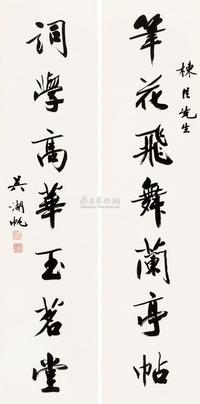 棟臣先生
筆花飛舞蘭亭帖
詞學高華玉茗堂
吳湖帆